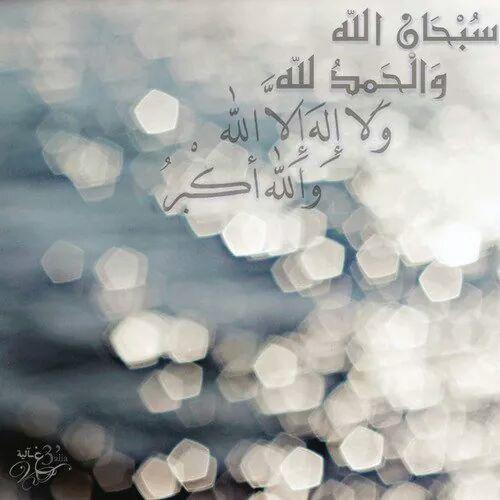 سُبْحَانَ اللّه
وَالْحَمدُ للّه
وَلا إِلَهَ إِلاَّ اللّٰه
وَاللّٰه أَكْبَرُ
غـآلية